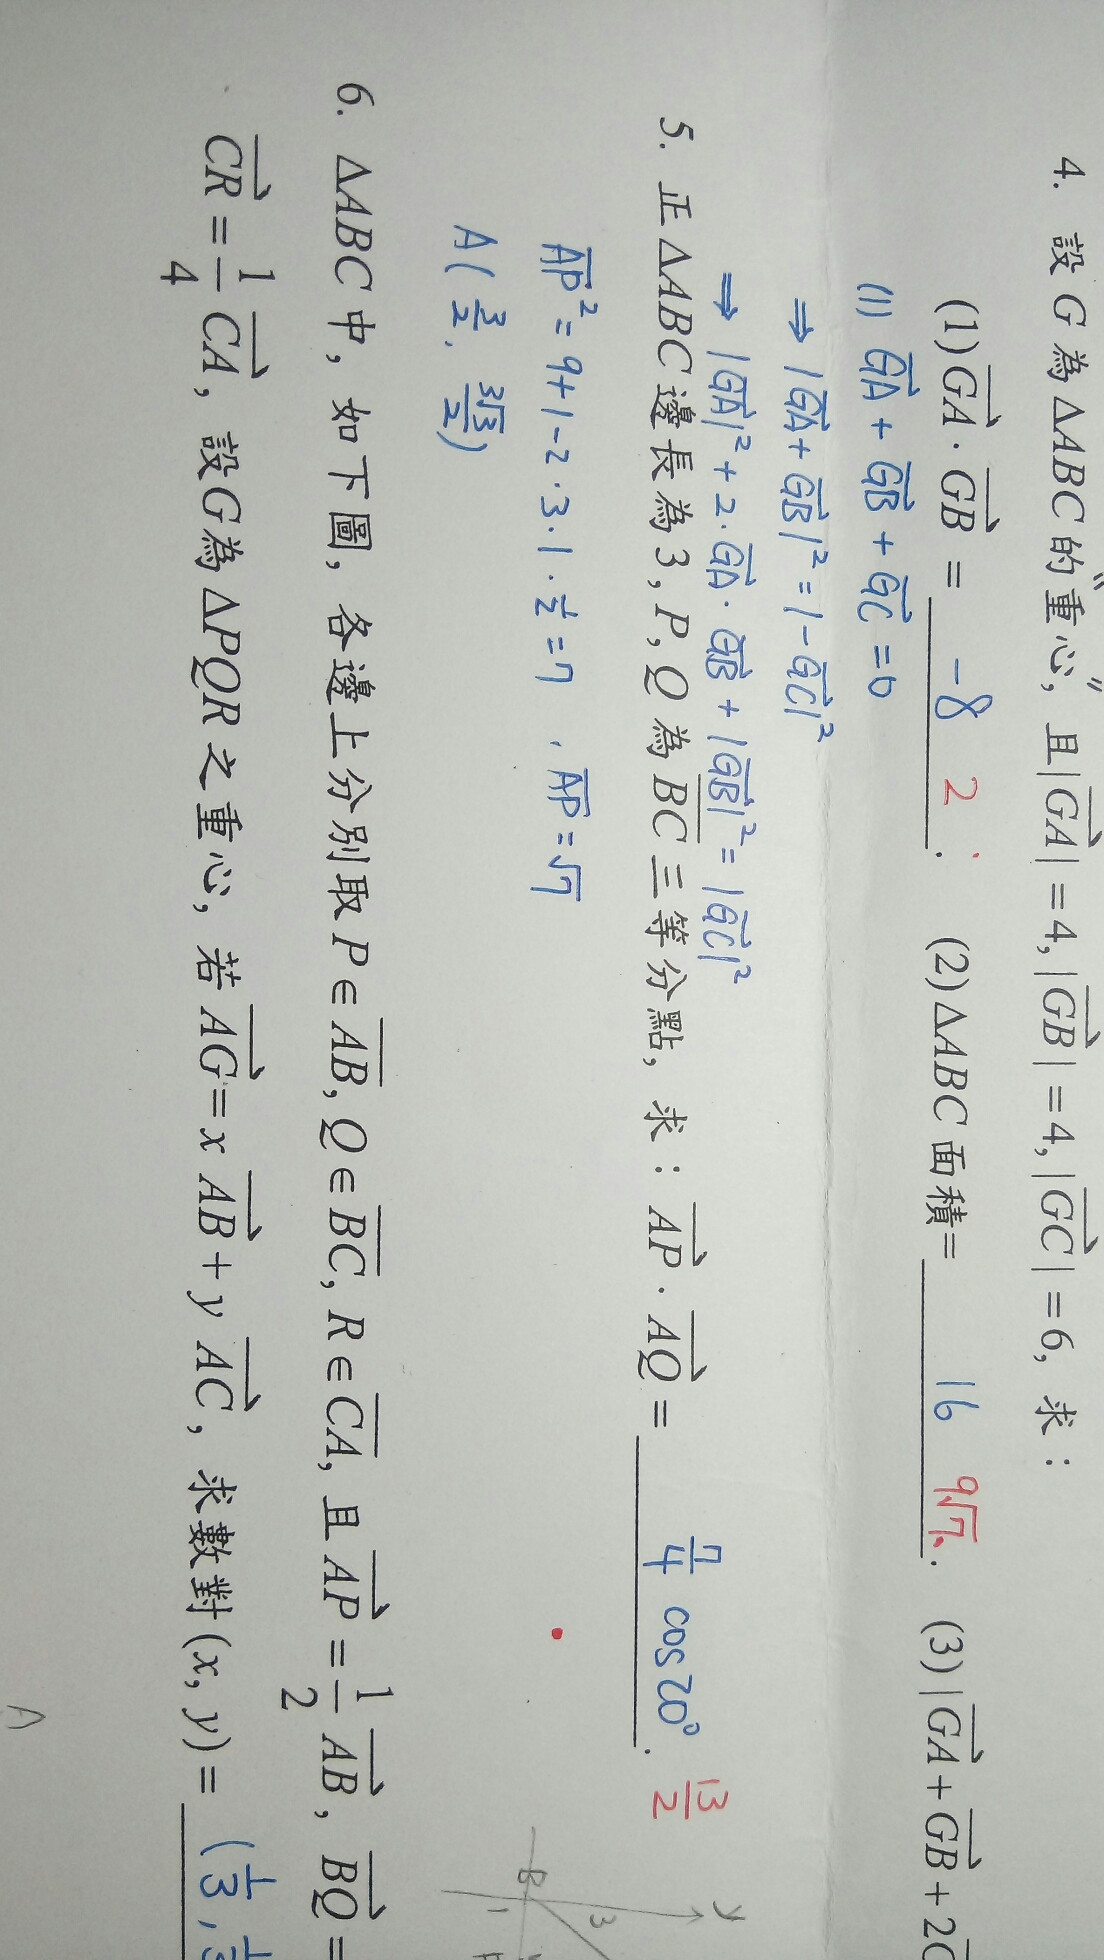 4. 設G為△ABC的"重心"，且|GA|=4,|GB|=4,|GC|=6，求：
(1) GA·GB = -8 2 . (2)△ABC面積= 16 9√7 . (3)|GA+GB+2
(1) GA + GB + GC = 0
⇒ |GA+GB|² = |-GC|²
⇒ |GA|² + 2·GA·GB + |GB|² = |GC|²
5. 正△ABC邊長為3，P，Q為BC三等分點，求：AP·AQ = 7/4 cos20° . 13/2
AP² = 9+1-2·3·1·1/2 = 7 , AP = √7
A(3/2, 3√3/2)
y
3
B
1
6. △ABC中，如下圖，各邊上分別取P∈AB，Q∈BC，R∈CA，且AP=1/2 AB，BQ=
CR=1/4 CA，設G為△PQR之重心，若AG=x AB+y AC，求數對(x, y)= (1/3,
A